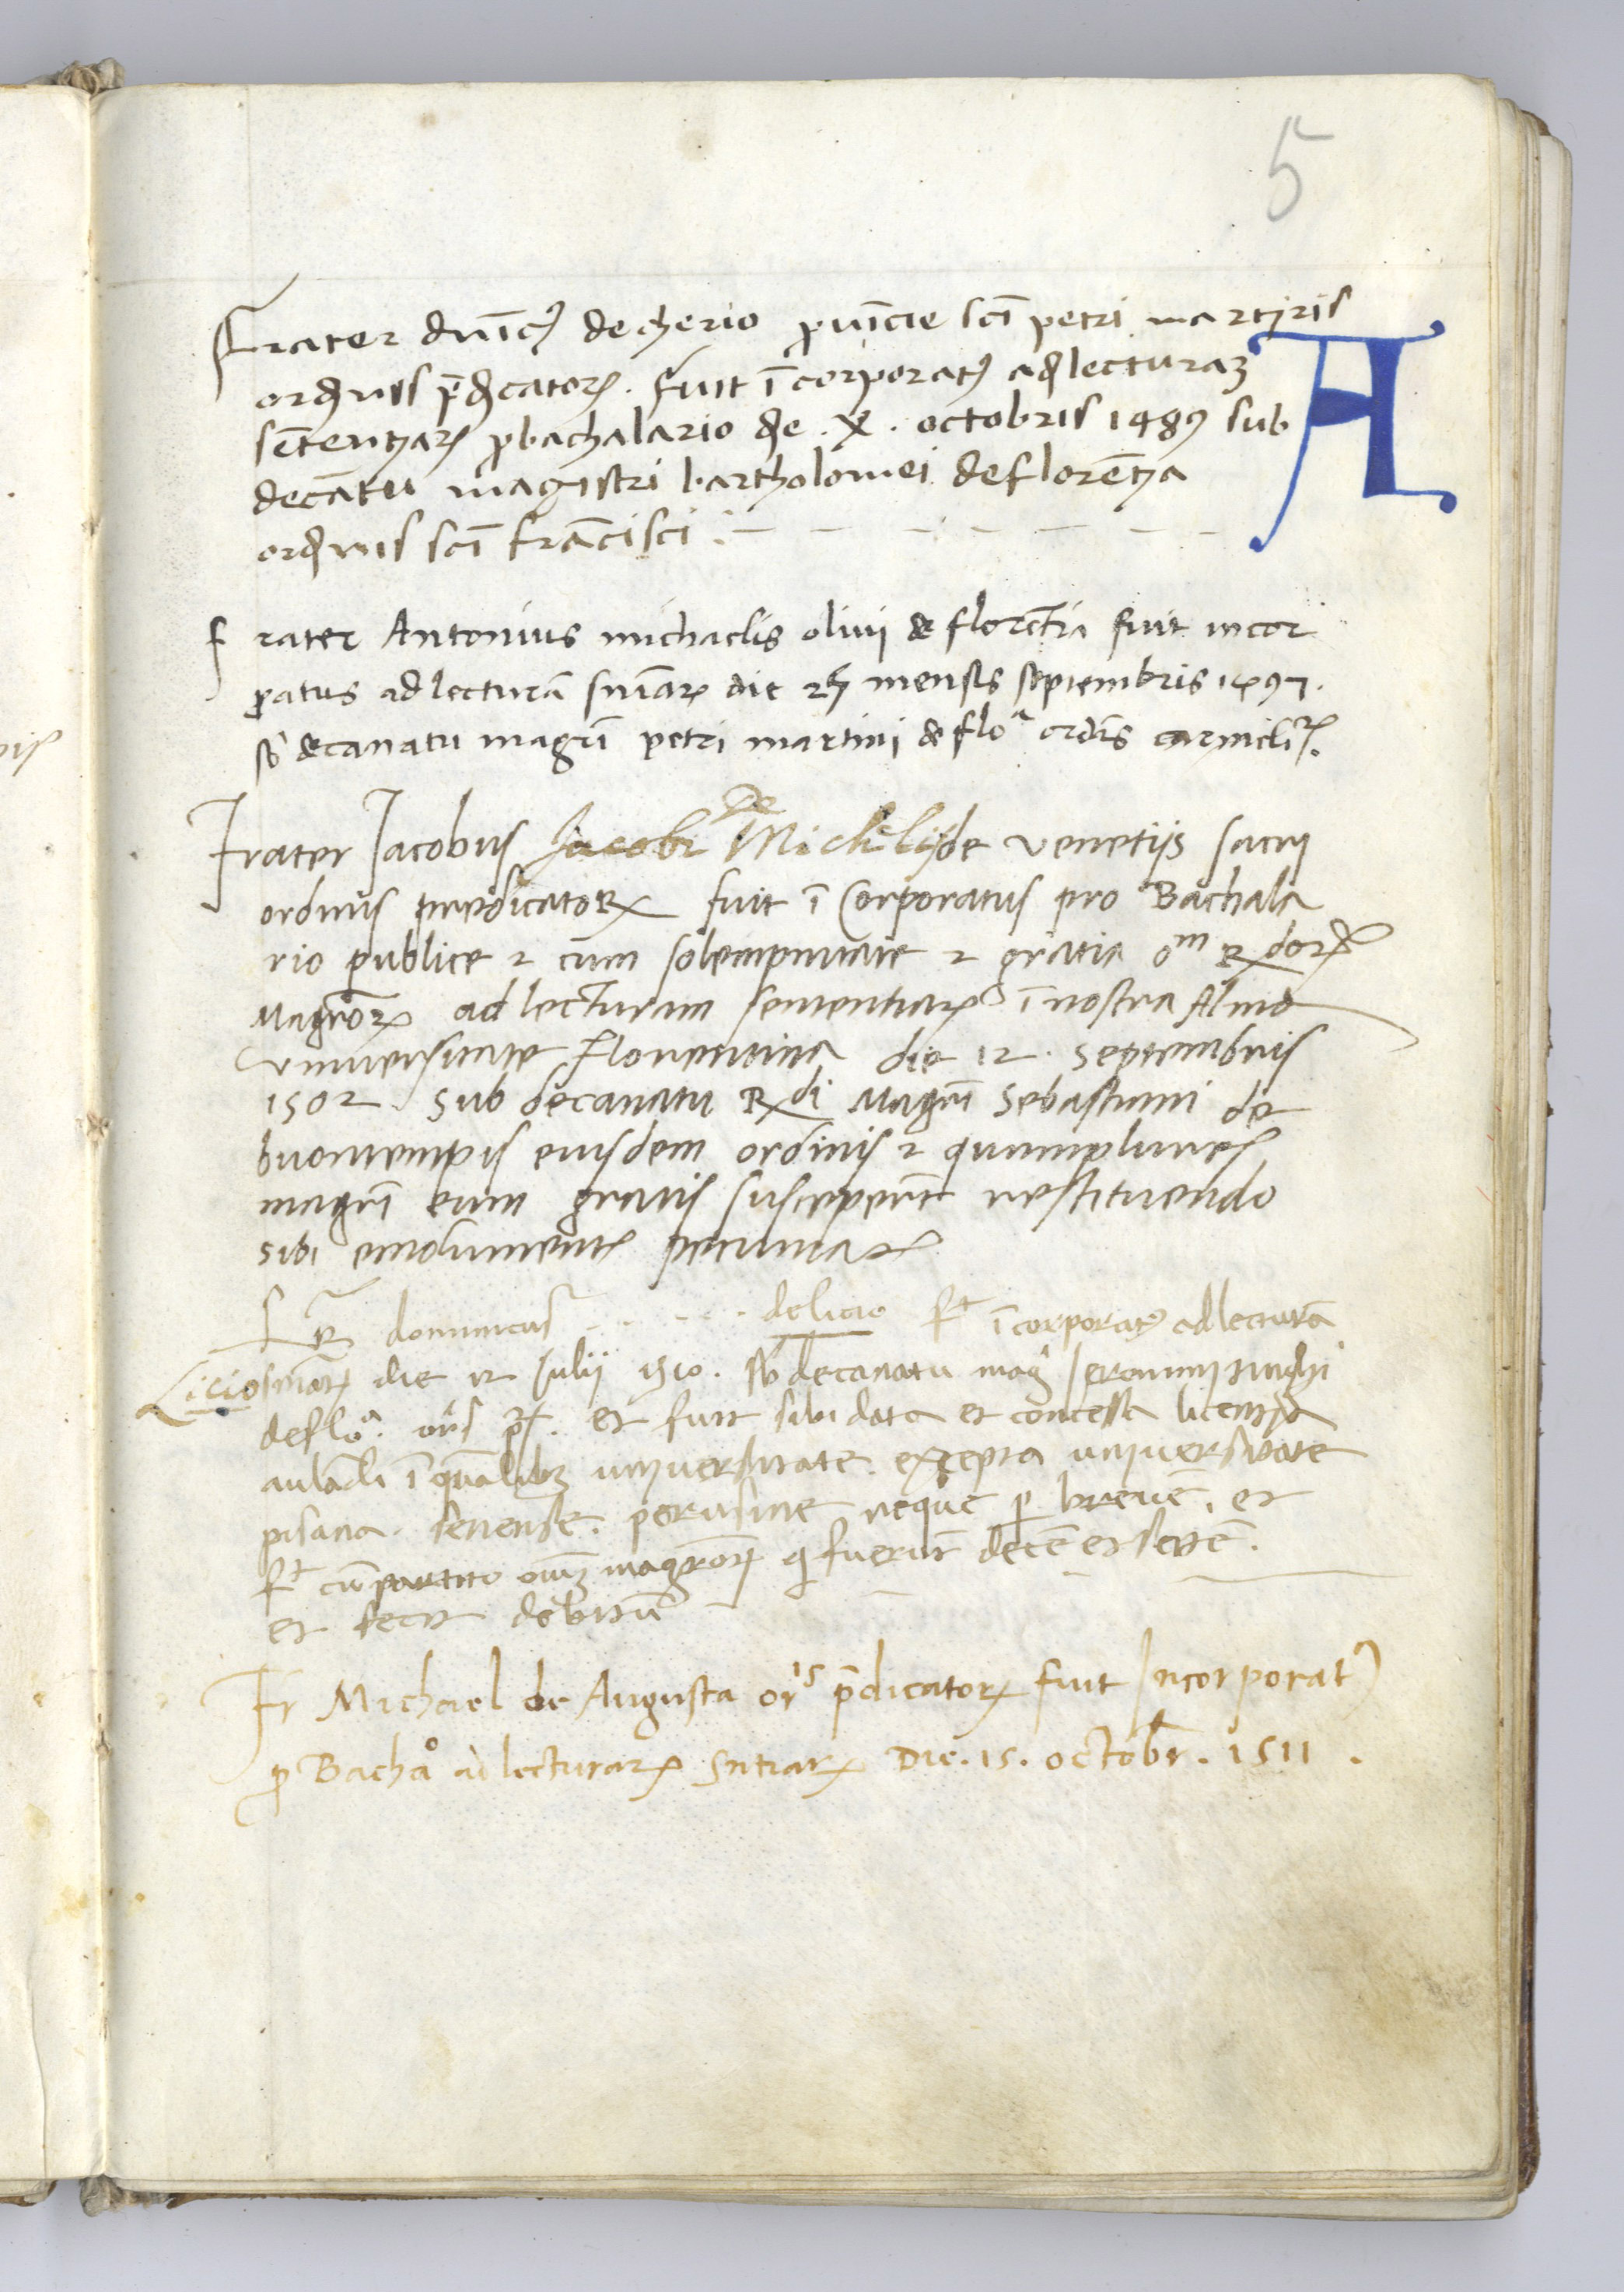 5
A
Frater dnīcꝰ de cherio ꝓuīcie scī petri martyris
ordinis p̄dicatoꝝ. fuit īcorporatꝰ ad lecturaꝫ
sētentiaꝝ ꝓ bachalario die . X . octobris 1489 sub
decānatu magistri bartholomei de florētia
ordinis scī frācisci :
frater Antonius michaelis oliui de florētia fuit incor
ꝑatus ad lecturā sniāꝝ die 25 mensis septembris 1497.
sb decanatu magr̄i petri martini de floᵃ ordīs carmelitꝝ.
Frater Iacobus Jacobi De Michelis de venetijs sacri
ordinis predicatoꝝ fuit ī Corporatus pro Bachala
rio publice ⁊ cum solempnitate ⁊ gratia oᵐ Rdoꝝ
Magroꝝ ad lecturam sententiaꝝ ī nostra Alma
vniuersitate Florentina die 12. septembris
1502. sub decanatu Rdi Magr̄i Sebastiani de
buontempis eiusdem ordinis ⁊ quamplures
magr̄i eum gratis susceperūt restituendo
sibi emolument pecuniaꝝ
Fr dominicus . . . . . de licio fᵗ īcorporatꝰ ad lecturā
Licio sniaꝝ die 12 Julij 1510. sb decanatu mag Ieronimi
de floᵃ. ors pꝝ. et fuit sibi data et concessa licentia
ī qualibꝫ vniuersitate. excepta vniuersitate
pisana. senense. perusine neque ꝑ breuē. et
fᵗ cū partito oīuꝫ magroꝝ q fuerūt decē et septē.
et fecit debitū
Fr Michael de Augusta orⁱˢ p̄dicatoꝝ fuit Incorporatꝰ
ꝓ Bachaº ad lecturaꝝ sntiaꝝ Die. 15. octobr. 1511 .